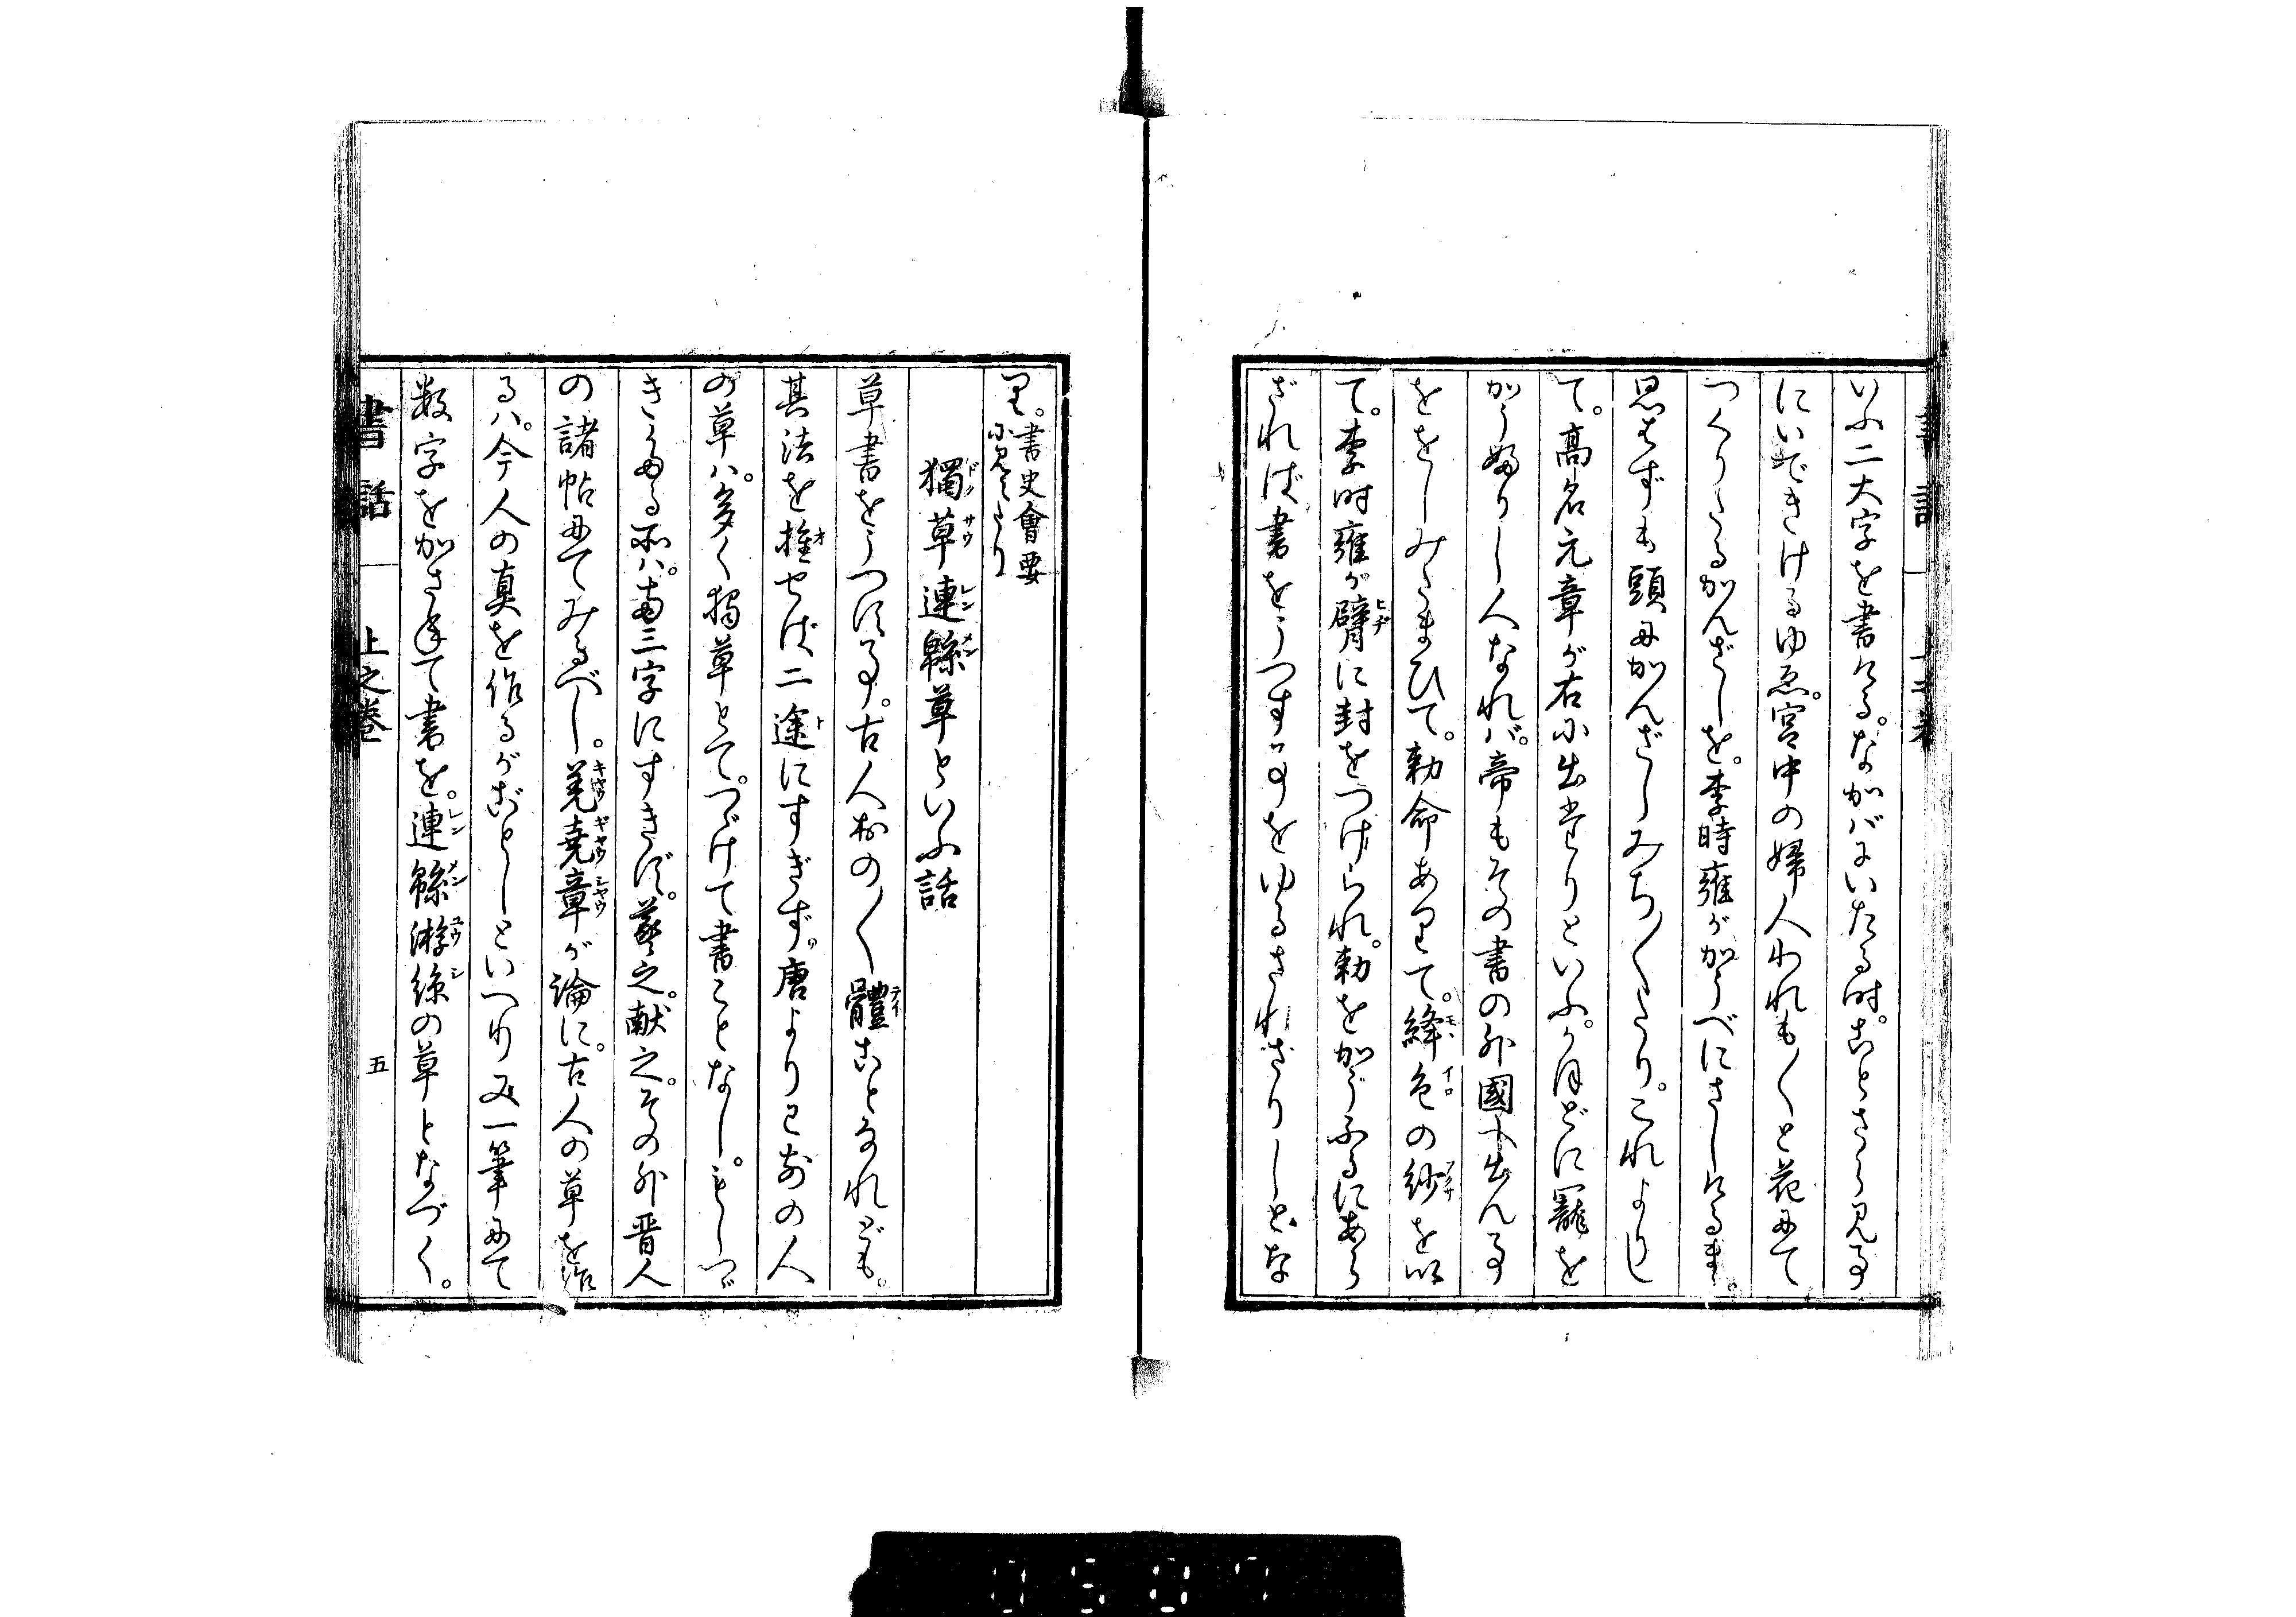 いふ二大字を書ける。なかバにいたる時。あとさら見る事
にいできけるゆゑ。宮中の婦人われも〳〵と花にて
つくりたるかんざしを。李時雍がかうべにさしける。
思はずも頭にかんざしみち〳〵たり。これよりし
て。高名元章が右に出たりといふ。かほどに寵を
かうぶりし人なれバ。帝もその書の外國へ出ん事
をゝしみたまひて。勅命ありて。絳色の紗を以
て。李時雍が臂に封をつけられ。勅をかうふるにあら
ざれば書をうつす事をゆるされざりしとな
り。書史會要
に見えたり
獨草連緜草といふ話
草書をうつする事。古人おの〳〵體ことなれども。
其法を推せば二途にすぎず。唐より已前の人
の草ハ。多く獨草とて。つゞけて書ことなし。もしつゞ
きたる所ハ。両三字にすぎず。羲之。献之。その外晋人
の諸帖にてみるべし。姜堯章が論に。古人の草を作
るハ。今人の真を作るがごとしといへり又一筆にて
数字をかさねて書を。連緜游絲の草となづく。
書話
上之巻
五